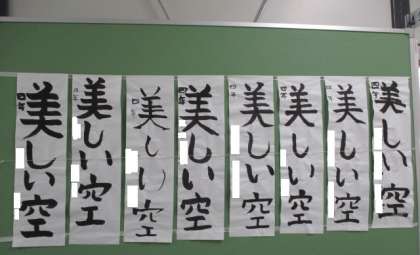 美しい空
四年
美しい空
四年
美しい空
四年
美しい空
四年
美しい空
四年
美しい空
四年
美しい空
四年
美しい空
四年